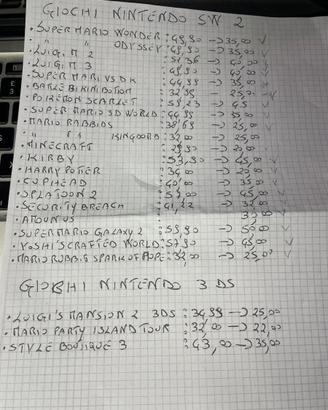 GIOCHI NINTENDO SW 2
• SUPER MARIO WONDER : 48,90 → 35,00 V
" " ODYSSEY : 48,90 → 35,00 V
• LUIGI M 2 : 51,36 → 40,00 V
• LUIGI M 3 : 49,90 → 40,00 V
• SUPER MARI VS DK : 44,99 → 35,00
• BATTLE BIKINI BOTTOM : 32,99 → 25,00
• POKEMON SCARLET : 59,23 → 45
• SUPER MARIO 3D WORLD : 44,99 → 35,00
• MARIO RABBIDS : 38,69 → 25,00
" " KINGDOM : 32,00 → 25,00
• MINECRAFT : 29,90 → 20,00
• KIRBY : 53,90 → 45,00 V
• HARRY POTTER : 34,00 → 20,00
• CUPHEAD : 40,00 → 35,00
• SPLATOON 2 : 54,00 → 45,00
• SECURITY BREACH : 41,22 → 32,00
• AMONG US 30,00 V
• SUPER MARIO GALAXY 2 : 59,90 → 50,00 V
• YOSHI'S CRAFTED WORLD : 57,90 → 45,00 V
• MARIO RABBIDS SPARK OF HOPE : 32,00 → 25,00 V
GIOCHI NINTENDO 3 DS
• LUIGI'S MANSION 2 3DS : 34,99 → 25,00
• MARIO PARTY ISLAND TOUR : 32,00 → 22,00
• STYLE BOUTIQUE 3 : 43,00 → 35,00